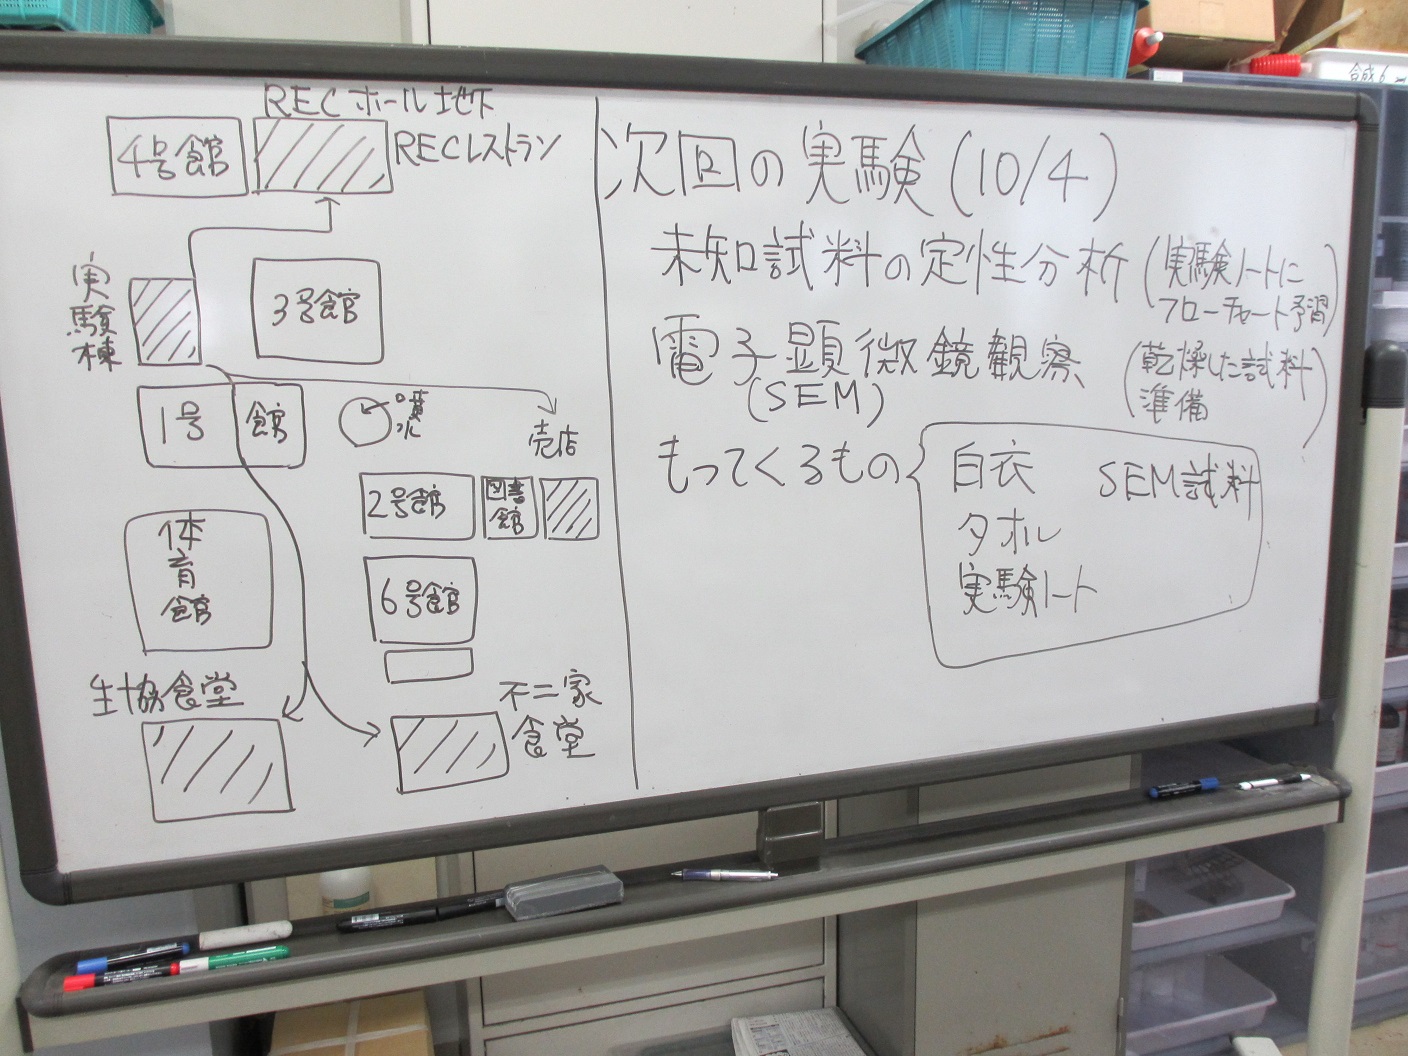 RECホール地下
4号館
RECレストラン
実験棟
3号館
1号館
噴水
売店
2号館
図書館
体育館
6号館
生協食堂
不二家
食堂
次回の実験(10/4)
未知試料の定性分析(実験ノートに
フローチャート予習)
電子顕微鏡観察(乾燥した試料
準備)
(SEM)
もってくるもの{白衣 SEM試料
タオル
実験ノート
合成6